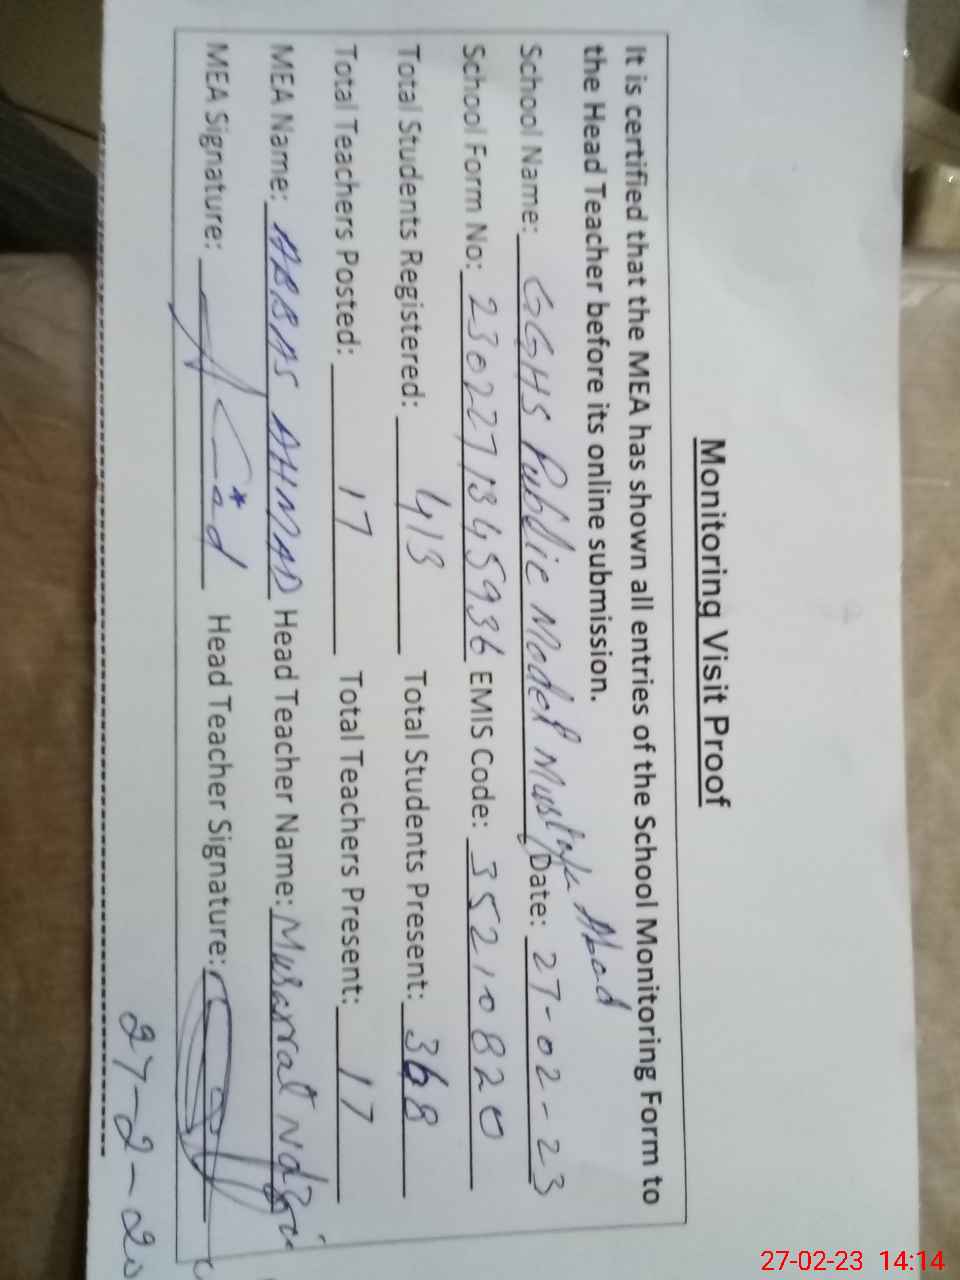 Monitoring Visit Proof
It is certified that the MEA has shown all entries of the School Monitoring Form to
the Head Teacher before its online submission.
School Name: GGHS Public Model Mustafa Abad Date: 27-02-23
School Form No: 230227134,5936 EMIS Code: 35210820
Total Students Registered: 413 Total Students Present: 368
Total Teachers Posted: 17 Total Teachers Present: 17
MEA Name: ABBAS AHMAD Head Teacher Name: Musarrat
MEA Signature: Head Teacher Signature:
27-2-20
27-02-23 14:14